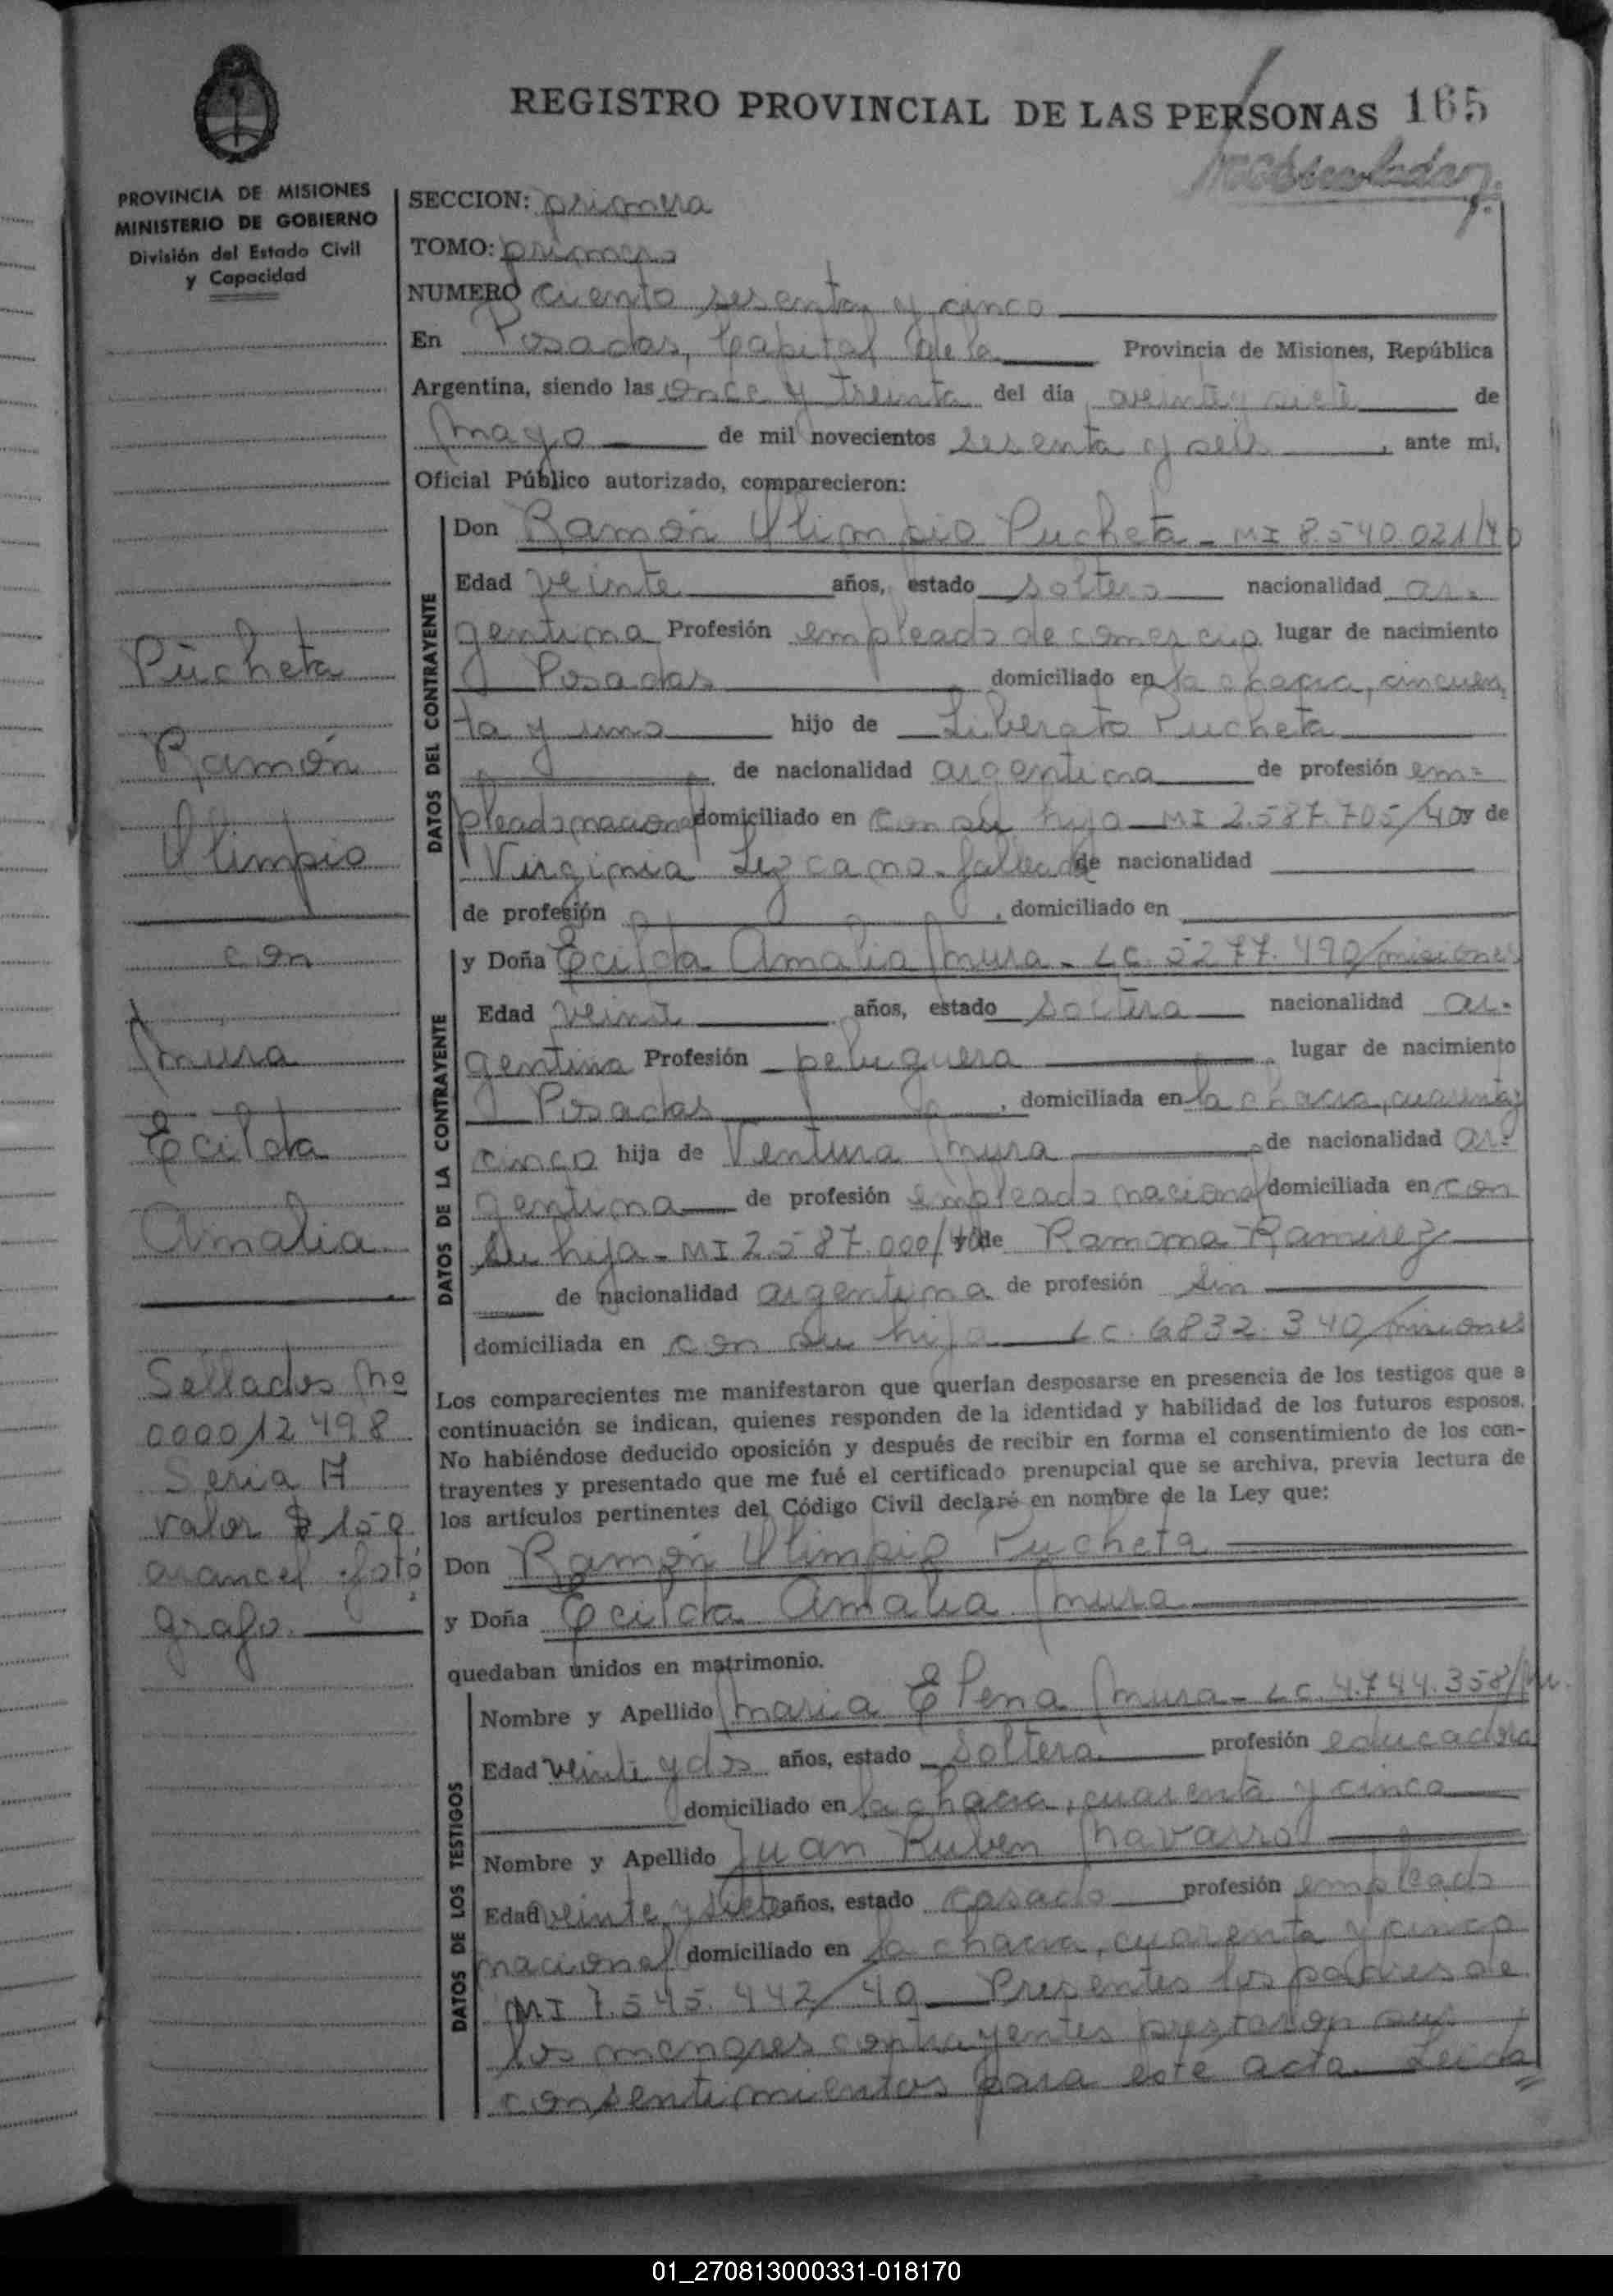 REGISTRO PROVINCIAL DE LAS PERSONAS 165
PROVINCIA DE MISIONES
MINISTERIO DE GOBIERNO
División del Estado Civil
y Capacidad
SECCION: primera
TOMO: primero
NUMERO ciento sesenta y cinco
En Posadas, Capital de la Provincia de Misiones, República
Argentina, siendo las once y treinta del día veinte y siete de
mayo de mil novecientos sesenta y seis, ante mi,
Oficial Público autorizado, comparecieron:
DATOS DEL CONTRAYENTE
Don Ramón Olimpio Pucheta - MI 8.540.021/40
Edad veinte años, estado soltero nacionalidad ar-
gentina Profesión empleado de comercio lugar de nacimiento
Posadas domiciliado en la chacra, cincuen
ta y uno hijo de Liberato Pucheta
de nacionalidad argentina de profesión em-
pleado nacional domiciliado en con su hijo - MI 2.587.705/40 y de
Virginia Lezcano - fallecida de nacionalidad
de profesión , domiciliado en
DATOS DE LA CONTRAYENTE
y Doña Ecilda Amalia Mura - LC. 5277.490/misiones
Edad veinte años, estado soltera nacionalidad ar-
gentina Profesión peluquera , lugar de nacimiento
Posadas , domiciliada en la chacra, cuarenta y
cinco hija de Ventura Mura de nacionalidad ar-
gentina de profesión empleado nacional domiciliada en con
su hija - MI 2.587.000/40 de Ramona Ramirez
de nacionalidad argentina de profesión sin
domiciliada en con su hija LC. 6832.340/misiones
Los comparecientes me manifestaron que querían desposarse en presencia de los testigos que a
continuación se indican, quienes responden de la identidad y habilidad de los futuros esposos.
No habiéndose deducido oposición y después de recibir en forma el consentimiento de los con-
trayentes y presentado que me fué el certificado prenupcial que se archiva, previa lectura de
los artículos pertinentes del Código Civil declaré en nombre de la Ley que:
Don Ramón Olimpio Pucheta
y Doña Ecilda Amalia Mura
quedaban unidos en matrimonio.
DATOS DE LOS TESTIGOS
Nombre y Apellido Maria Elena Mura - LC. 4.744.358/Mi.
Edad veinte y dos años, estado soltera profesión educadora
domiciliado en la chacra, cuarenta y cinco
Nombre y Apellido Juan Ruben Navarro
Edad veinte y siete años, estado casado profesión empleado
nacional domiciliado en la chacra, cuarenta y cinco
MI 7.545.442/40 Presentes los padres de
los menores contrayentes prestaron sus
consentimientos para este acta. Leida
Pucheta
Ramón
Olimpio
con
Mura
Ecilda
Amalia
Sellados No
000012498
Seria A
valor $ 150
arancel fotó
grafo.
01_270813000331-018170